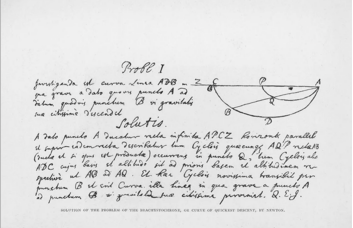 Probl I
Investiganda est curva Linea ADB in
qua grave a dato quovis puncto A ad
datum quodvis punctum B vi gravitatis
suæ citissime descendet
Z C P A
Q
B
D
Solutio.
A dato puncto A ducatur recta infinita APCZ horizonti parallela
et super eadem recta describatur tum Cyclois quæcunque AQP rectæ AB
(ductæ et si opus est productæ) occurrens in puncto Q, tum Cyclois alia
ADC cujus basis et altitudo sit ad prioris basem et altitudinem respective
ut AB ad AQ. Et hæc Cyclois novissima transibit per
punctum B et erit Curva illa linea in qua grave a puncto A
ad punctum B vi gravitatis suæ citissime perveniet. Q.E.I.
SOLUTION OF THE PROBLEM OF THE BRACHISTOCHRONE, OR CURVE OF QUICKEST DESCENT, BY NEWTON.